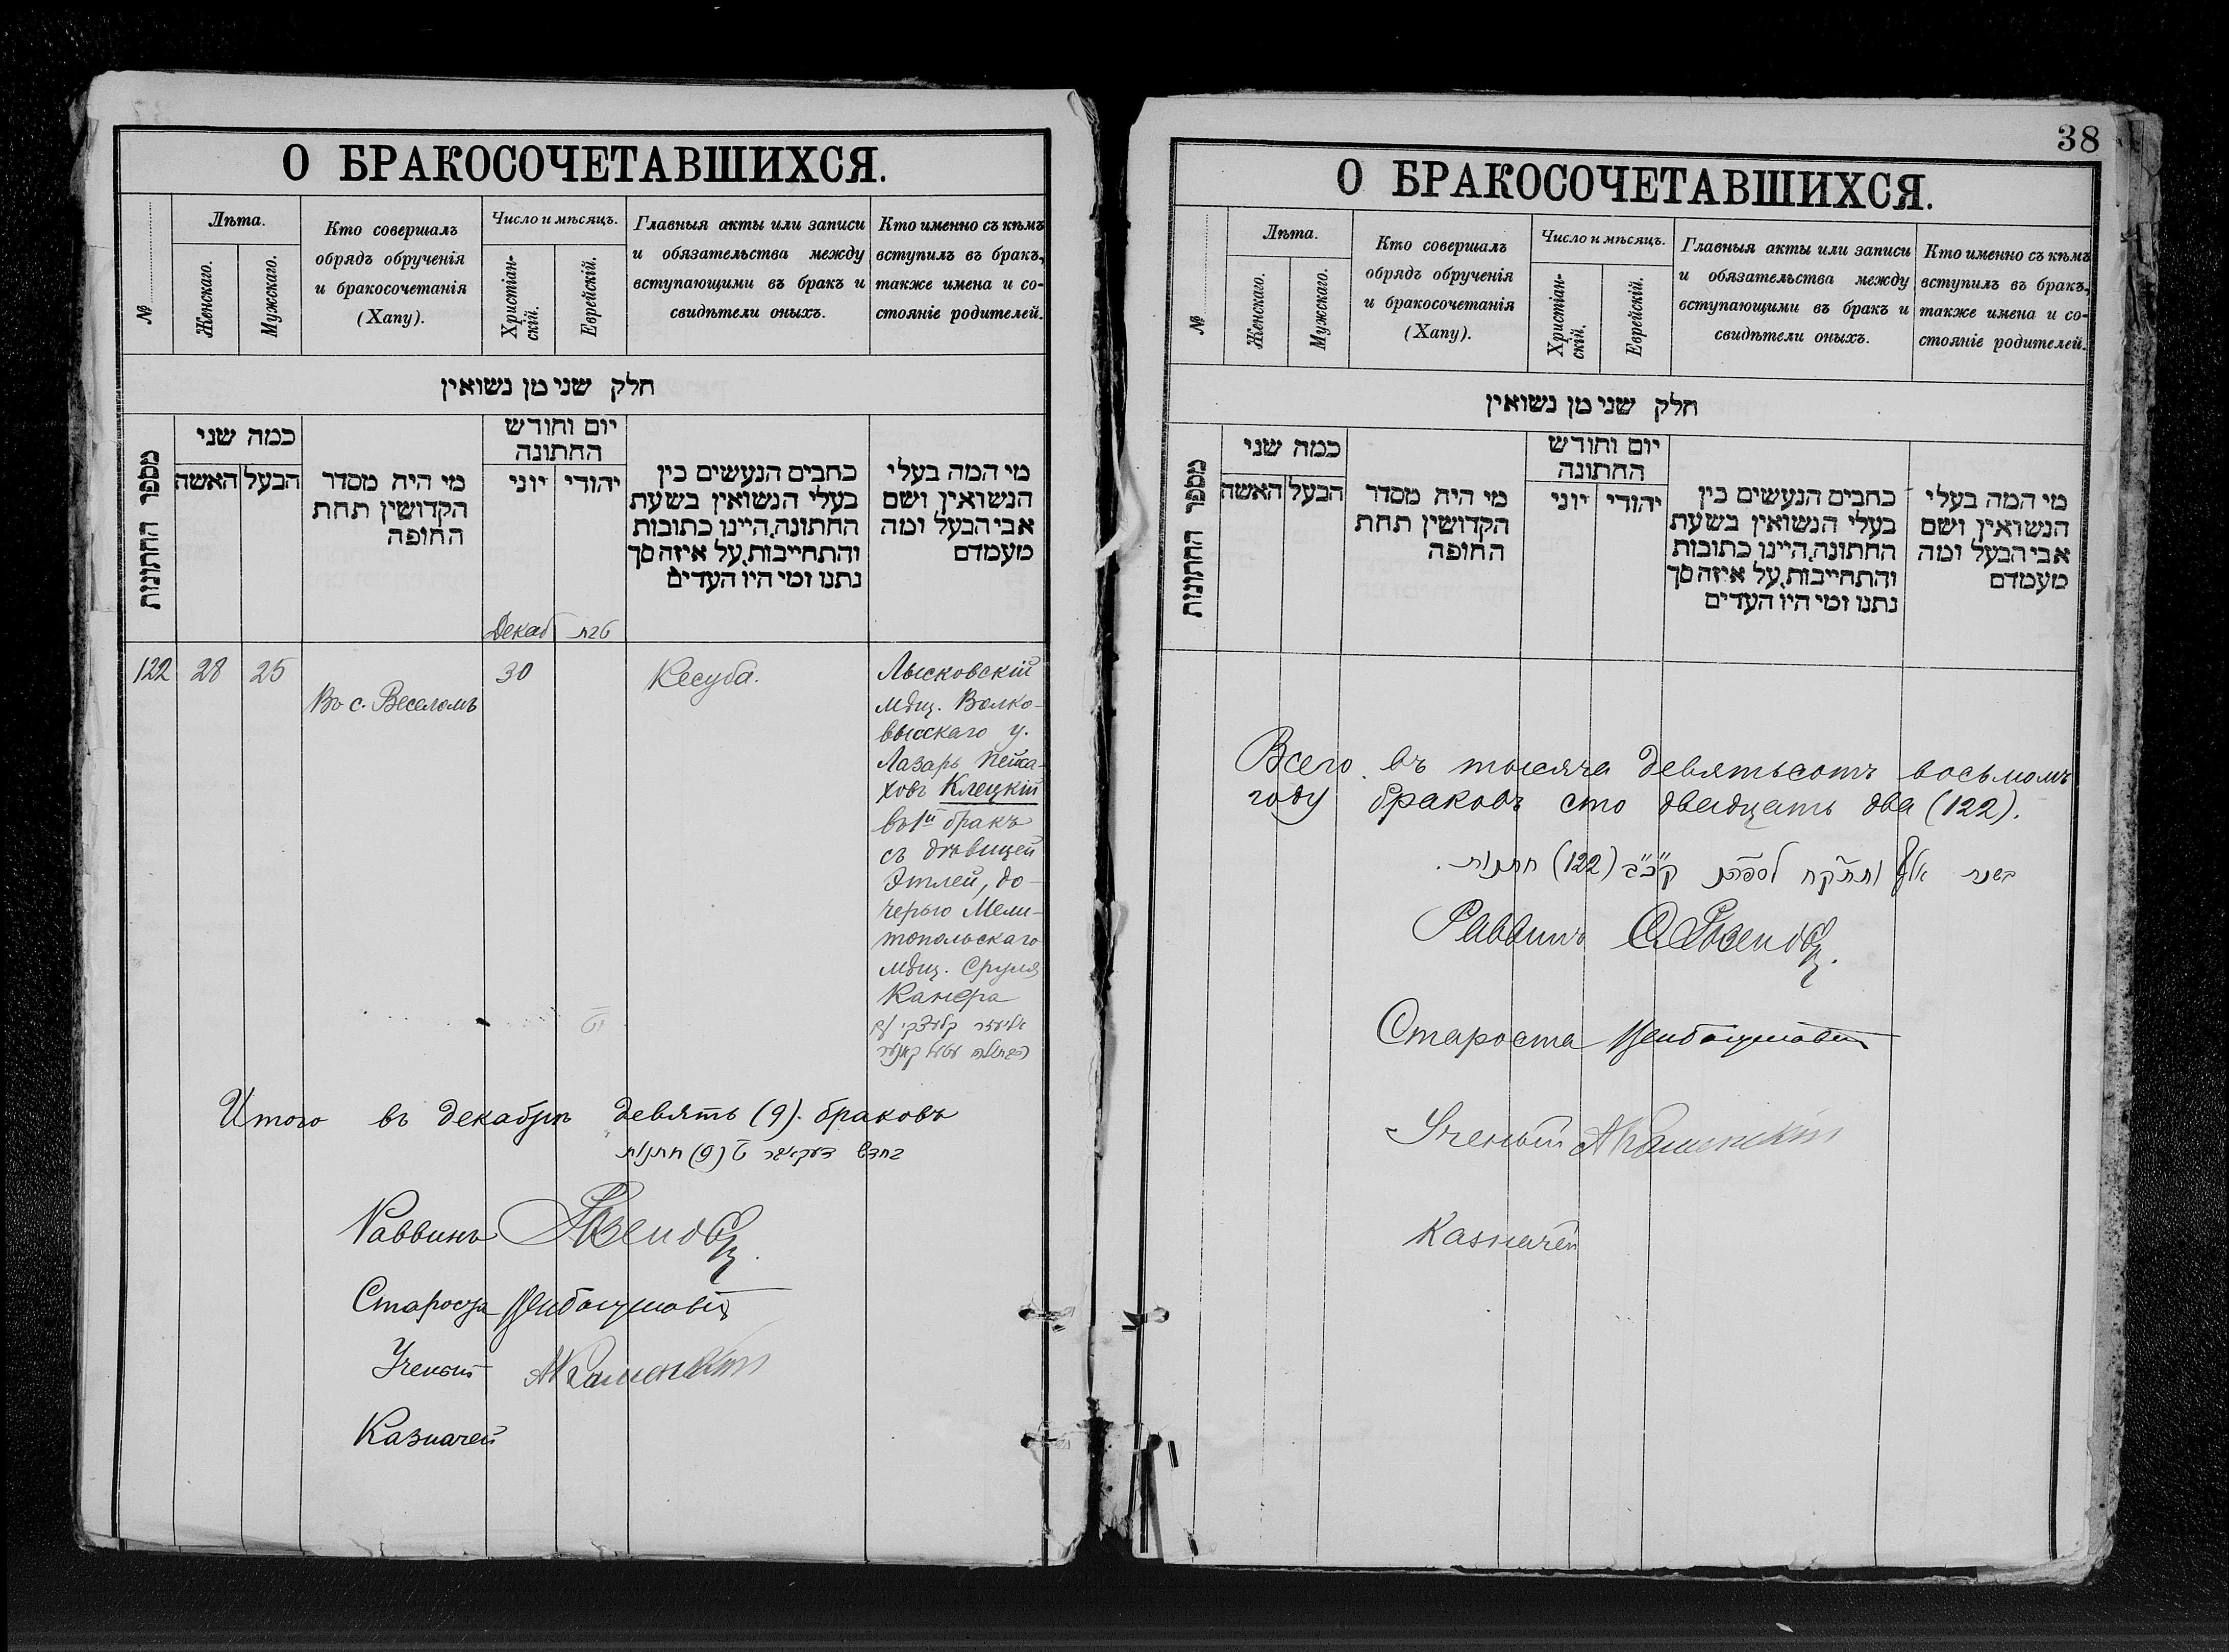 О БРАКОСОЧЕТАВШИХСЯ.
№
Лѣта.
Женскаго.
Мужскаго.
Кто совершалъ
обрядъ обрученія
и бракосочетанія
(Хапу).
Число и мѣсяцъ.
Христіан-
скій.
Еврейскій.
Главныя акты или записи
и обязательства между
вступающими въ бракъ и
свидѣтели оныхъ.
Кто именно съ кѣмъ
вступилъ въ бракъ,
также имена и со-
стояніе родителей.
חלק שני מן נשואין
מספר החתונות
כמה שני
הבעל האשה
מי היה מסדר
הקדושין תחת
החופה
יום וחודש
החתונה
יהודי יוני
כתבים הנעשים בין
בעלי הנשואין בשעת
החתונה, היינו כתובות
והתחייבות, על איזה סך
נתנו ומי היו העדים
מי המה בעלי
הנשואין ושם
אבי הבעל ומה
מעמדם
Декаб טבת
122 28 25
Въ с. Веселомъ
30
Кесуба.
Лысковскій
мѣщ. Волко-
высскаго у.
Лазарь Пейса-
ховъ Клецкій
въ 1й бракъ
съ дѣвицей
Этлей, до-
черью Мели-
топольскаго
мѣщ. Сруля
Канера
אליעזר קלעצקי עם
הבתולה עטל קאנער
Итого въ декабрѣ девять (9). браковъ
בחדש דעקאבר ט (9) חתנות
Раввинъ
Староста
Ученый
Казначей
38
О БРАКОСОЧЕТАВШИХСЯ.
№
Лѣта.
Женскаго.
Мужскаго.
Кто совершалъ
обрядъ обрученія
и бракосочетанія
(Хапу).
Число и мѣсяцъ.
Христіан-
скій.
Еврейскій.
Главныя акты или записи
и обязательства между
вступающими въ бракъ и
свидѣтели оныхъ.
Кто именно съ кѣмъ
вступилъ въ бракъ,
также имена и со-
стояніе родителей.
חלק שני מן נשואין
מספר החתונות
כמה שני
הבעל האשה
מי היה מסדר
הקדושין תחת
החופה
יום וחודש
החתונה
יהודי יוני
כתבים הנעשים בין
בעלי הנשואין בשעת
החתונה, היינו כתובות
והתחייבות, על איזה סך
נתנו ומי היו העדים
מי המה בעלי
הנשואין ושם
אבי הבעל ומה
מעמדם
Всего въ тысяча девятьсотъ восьмомъ
году браковъ сто двадцать два (122).
בשנת אלף ותתקח למספרם קכ"ב (122) חתנות.
Раввинъ
Староста
Ученый
Казначей